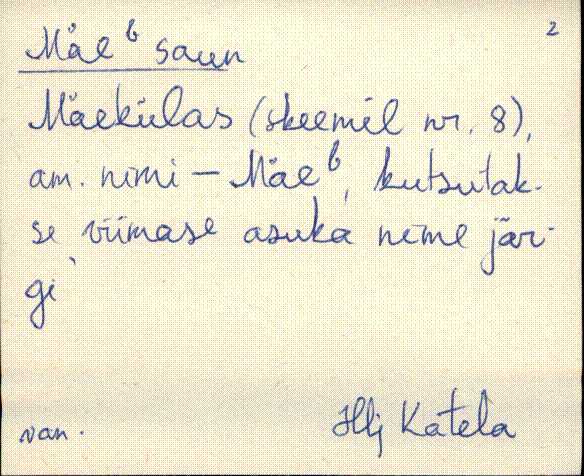 2
Mäe b saun
Mäekülas (skeemil nr. 8),
am. nimi – Mäe b, kutsutak-
se viimase asuka nime jär-
gi
van. Hlj Kätela